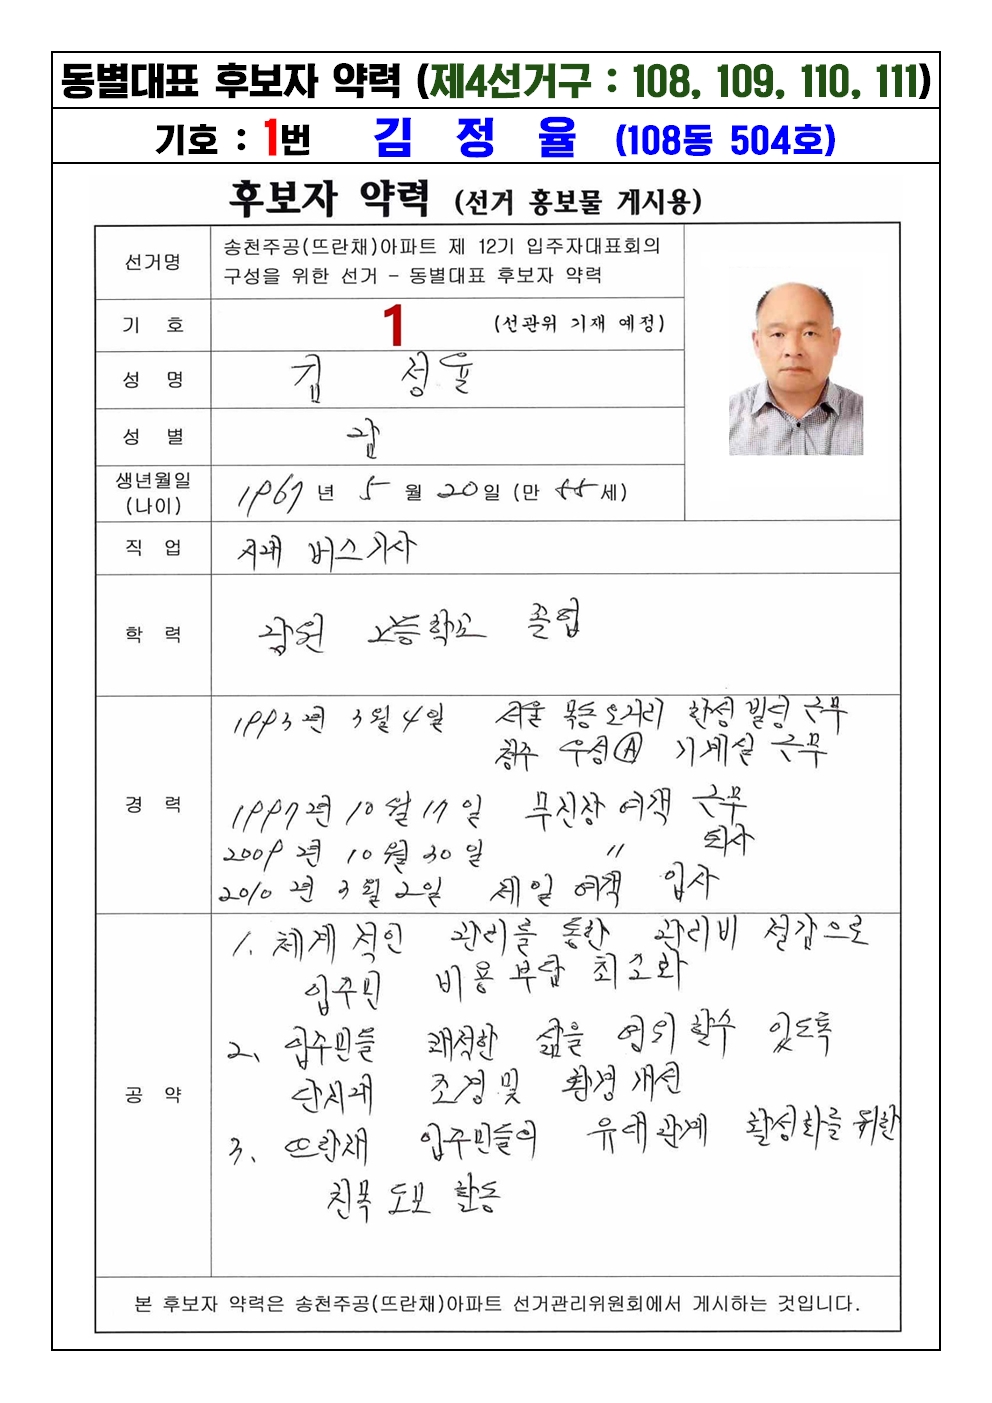 동별대표 후보자 약력 (제4선거구 : 108, 109, 110, 111)
기호 : 1번 김 정 율 (108동 504호)
후보자 약력 (선거 홍보물 게시용)
선거명
송천주공(뜨란채)아파트 제 12기 입주자대표회의
구성을 위한 선거 - 동별대표 후보자 약력
기 호 1 (선관위 기재 예정)
성 명 김 정율
성 별 남
생년월일
(나이)
1967 년 5 월 20 일 (만 55 세)
직 업 시내 버스기사
학 력 남원 고등학교 졸업
경 력
1993년 3월 4일 서울 목동오거리 한성빌딩 근무
청주 우성Ⓐ 기계실 근무
1997년 10월 17일 무진장 여객 근무
2009년 10월 30일 〃 퇴사
2010년 3월 2일 제일 여객 입사
공 약
1. 체계적인 관리를 통한 관리비 절감으로
입주민 비용부담 최소화
2. 입주민들 쾌적한 삶을 영위 할수 있도록
단지내 조경 및 환경개선
3. 뜨란채 입주민들의 유대관계 활성화를 위한
친목 도모 활동
본 후보자 약력은 송천주공(뜨란채)아파트 선거관리위원회에서 게시하는 것입니다.